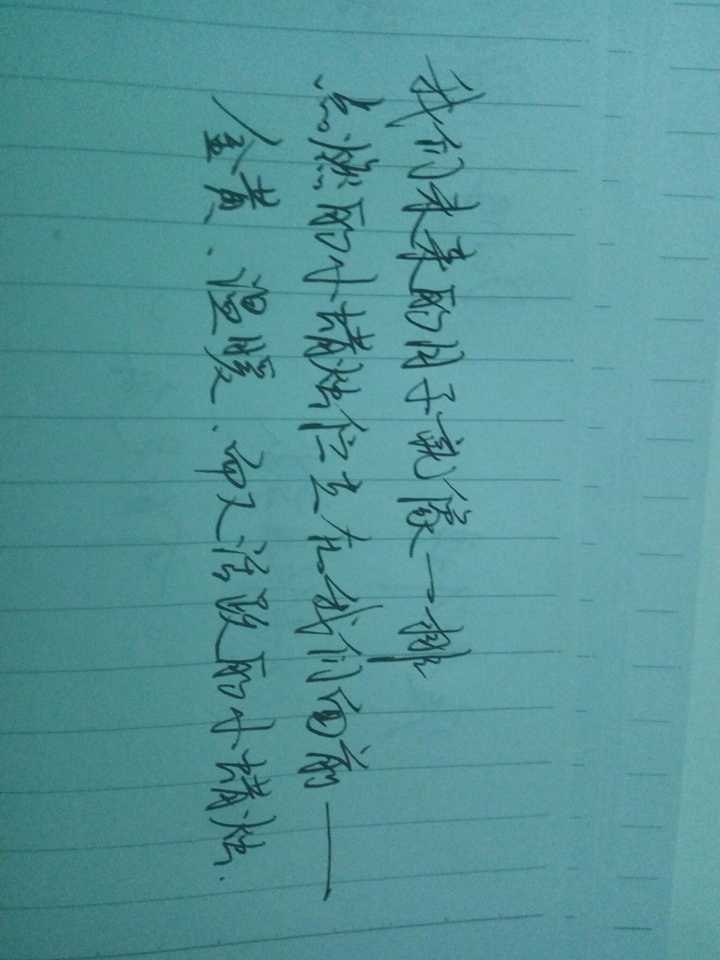 我们未来的日子就像一排
点燃的小蜡烛伫立在我们面前——
金黄.温暖.而又活跃的小蜡烛.